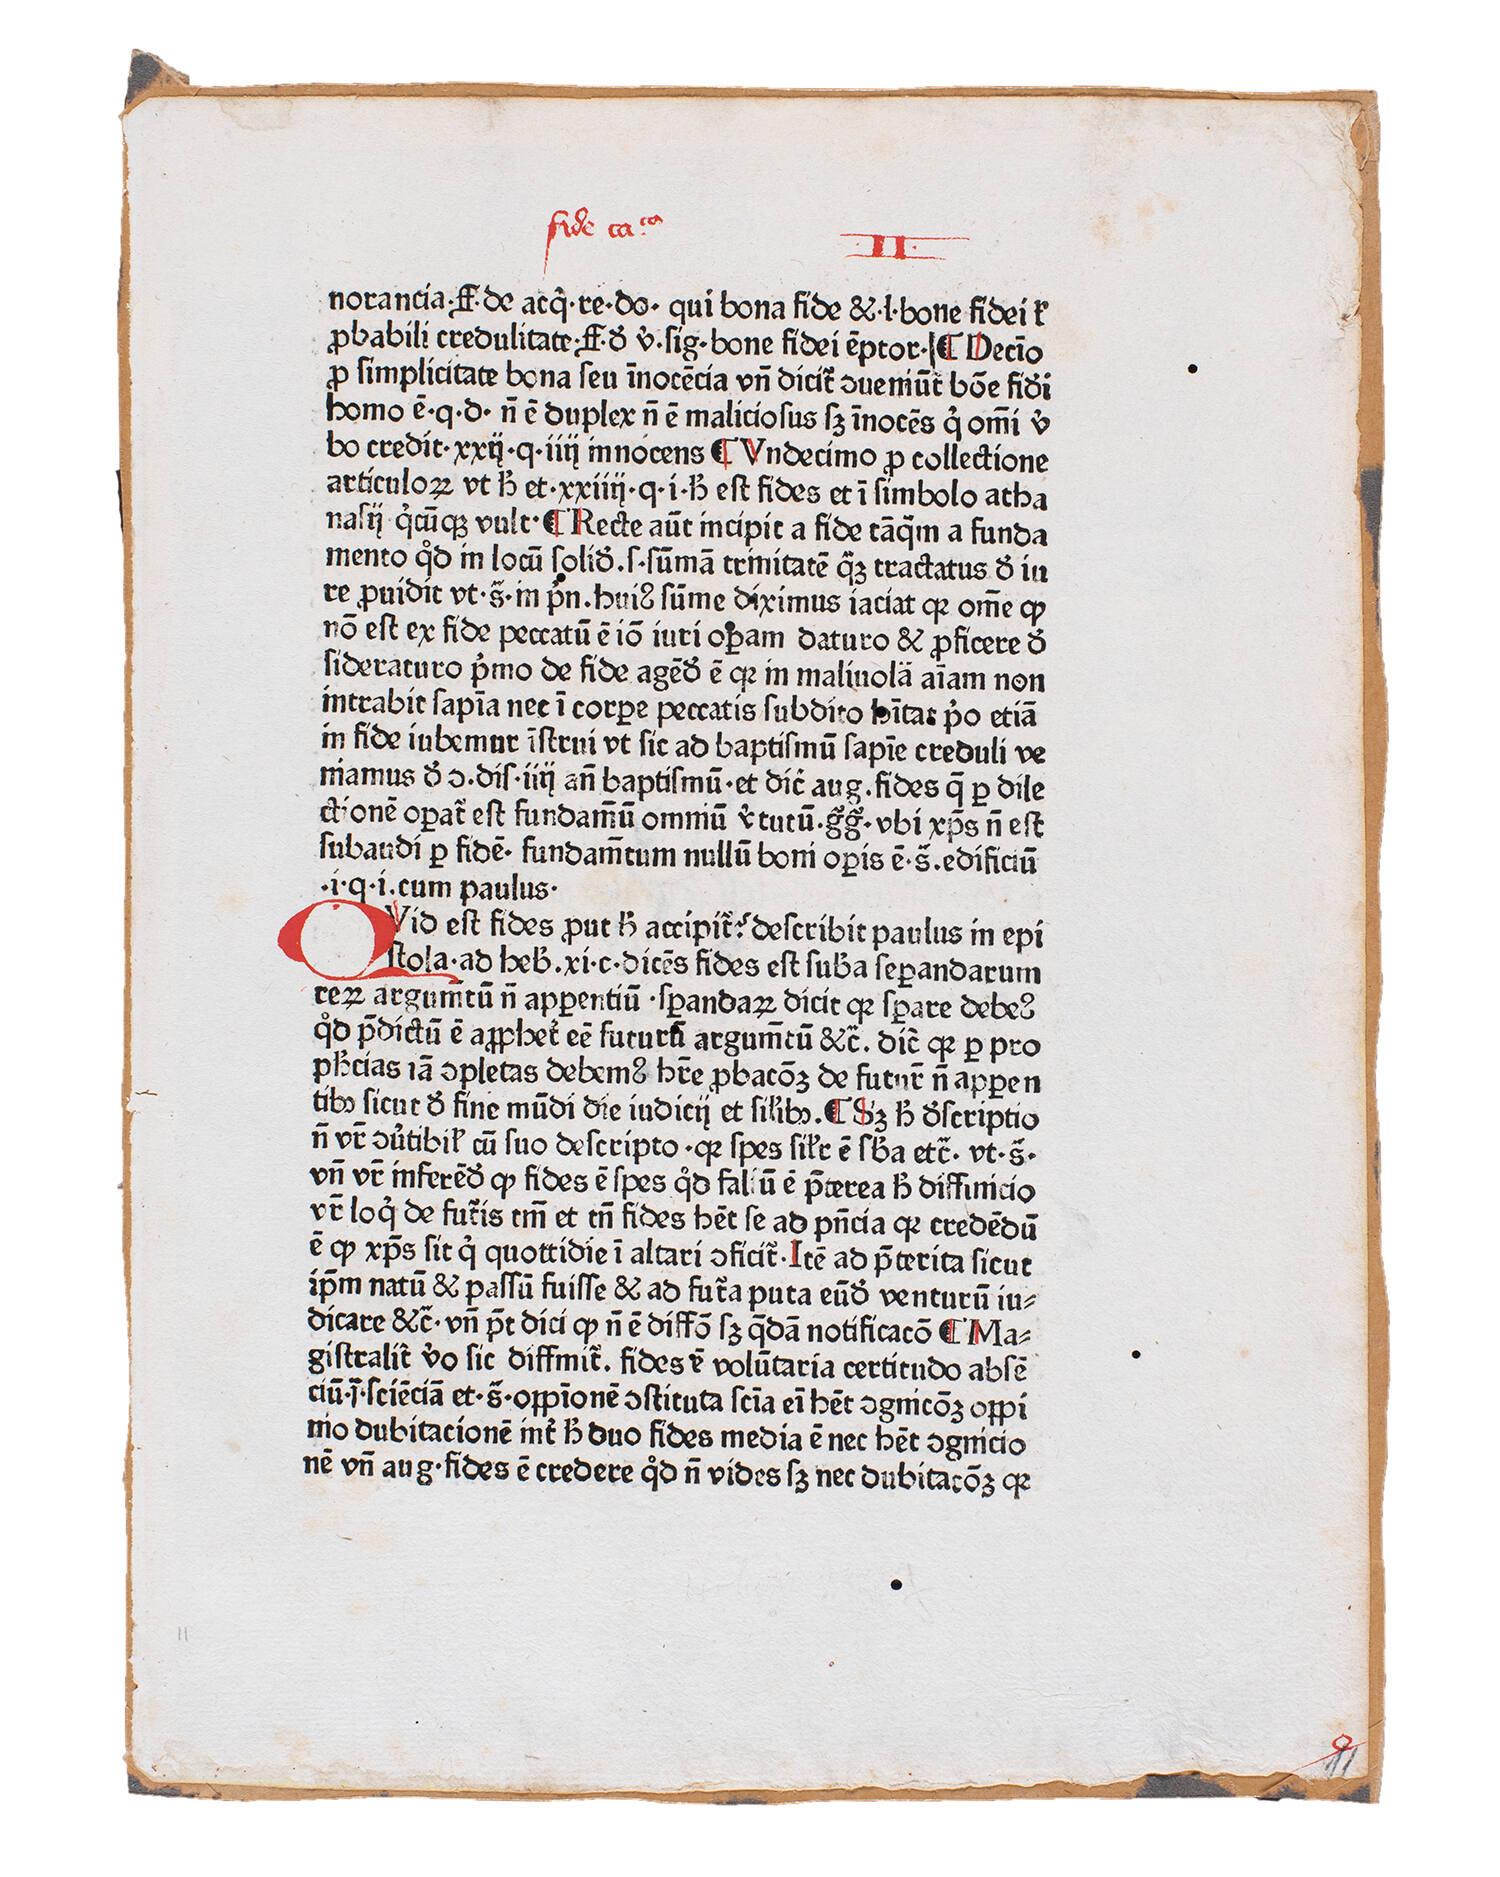 fide ca.ca
·II·
norancia·ff·de acq̇·re·do· qui bona fide &·l·bone fidei ł
ꝓbabili credulitate·ff·ꝺ̄ v̇·sig·bone fidei ēptor·|¶ Decīo
ꝓ simplicitate bona seu īnocēcia vn̄ dicit᷑ ɔueniūt᷑ bōe fiꝺ̄i
homo ē·q·d· n̄ ē duplex n̄ ē maliciosus sꝫ īnocēs q̇ om̄i v̇
bo credit·xxij·q·iiij innocens ¶ Vndecimo ꝓ collectione
articuloꝝ vt ħ et·xxiiij·q·i·ħ est fides et ī simbolo atha
nasij q̇cūqꝫ vult·¶ Recte aūt incipit a fide tāq̄m a funda
mento q̊d in locū soliꝺ̄.s·sūmā trinitatē q̄ꝫ tractatus ꝺ̄ iu
re ꝓuidit vt·s̄·in pn̄.huiꝰ sūme diximus iaciat qꝛ om̄e ꝙ
nō est ex fide peccatū ē iō iuri oꝑam daturo & ꝓficere ꝺ̄
sideraturo pᷤmo de fide agēꝺ̄ ē qꝛ in maliuolā aīam non
intrabit sapīa nec ī corꝑe peccatis subdito hītat pᷤo etiā
in fide iubemur īstrui vt sic ad baptismū sapīe creduli ve
niamus ꝺ̄ ɔ.dis·iiij an̄ baptismū·et dic̄ aug.fides q̄ ꝑ dile
ctionē oꝑat᷑ est fundam̄ū omniū v̇tutū·ḡḡ·vbi xp̄s n̄ est
subaudi ꝑ fidē· fundam̄tum nullū boni oꝑis ē·s̄.edificiū
·i·q·i.cum paulus·
QVid est fides ꝓut ħ accipit᷑? describit paulus in epi
stola·ad heƀ.xi·c·dicēs fides est suƀa seꝑandarum
reꝝ argum̄tū n̄ apꝑentiū ·sꝑandaꝝ dicit qꝛ sꝑare debeꝰ
q̊d p̄dictū ē aꝓphet᷑ eē futurū argum̄tū &c̄. dic̄ qꝛ ꝑ pro
pħcias iā ɔpletas debemꝰ hr̄e ꝓbacōꝫ de futur̄ n̄ apꝑen
tibꝫ sicut ꝺ̄ fine mūdi die iudicij et silibꝫ.¶ Sꝫ ħ ꝺ̄scriptio
n̄ vr̄ ɔu̇tibił cū suo descripto ·qꝛ spes siłr ē sƀa etc̄· vt·s̄·
vn̄ vr̄ inferēꝺ̄ ꝙ fides ē spes q̊d falsū ē p̄terea ħ diffinicio
vr̄ loq̇ de fut᷑is tm̄ et tn̄ fides hēt se ad pn̄cia qꝛ credēdū
ē ꝙ xp̄s sit q̇ quottidie ī altari ɔficit᷑·Itē ad p̄terita sicut
ip̄m natū & passū fuisse & ad fut᷑a puta eūꝺ̄ venturū iu⸗
dicare &c̄· vn̄ p̄t dici ꝙ n̄ ē diffō sꝫ q̄dā notificacō ¶ Ma⸗
gistralit᷑ v̇o sic diffinit᷑. fides ē volūtaria certitudo absē
ciū·ī·sciēciā et·s̄·oppīonē ɔstituta scīa eī hēt ɔgnicōꝫ oppi
nio dubitacionē int᷑ ħ duo fides media ē nec hēt ɔgnicio
nē vn̄ aug·fides ē credere q̊d n̄ vides sꝫ nec dubitacōꝫ qꝛ
11
11